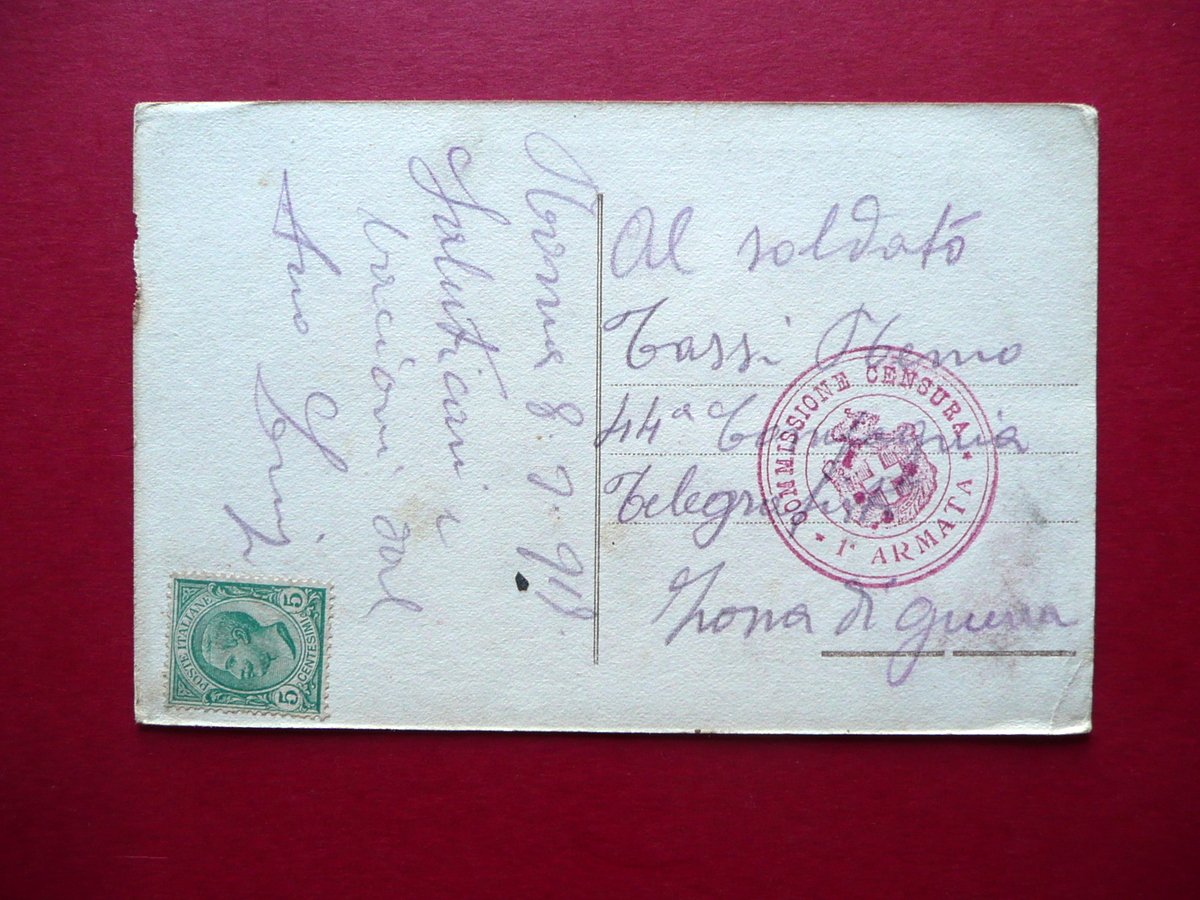 Roma 8. 7. 919.
Saluti cari e
bacioni dal
tuo
Al soldato
Tassi Remo
44ª Compagnia
Telegrafisti
Zona di guerra
COMMISSIONE CENSURA
1ª ARMATA
POSTE ITALIANE
5 CENTESIMI 5